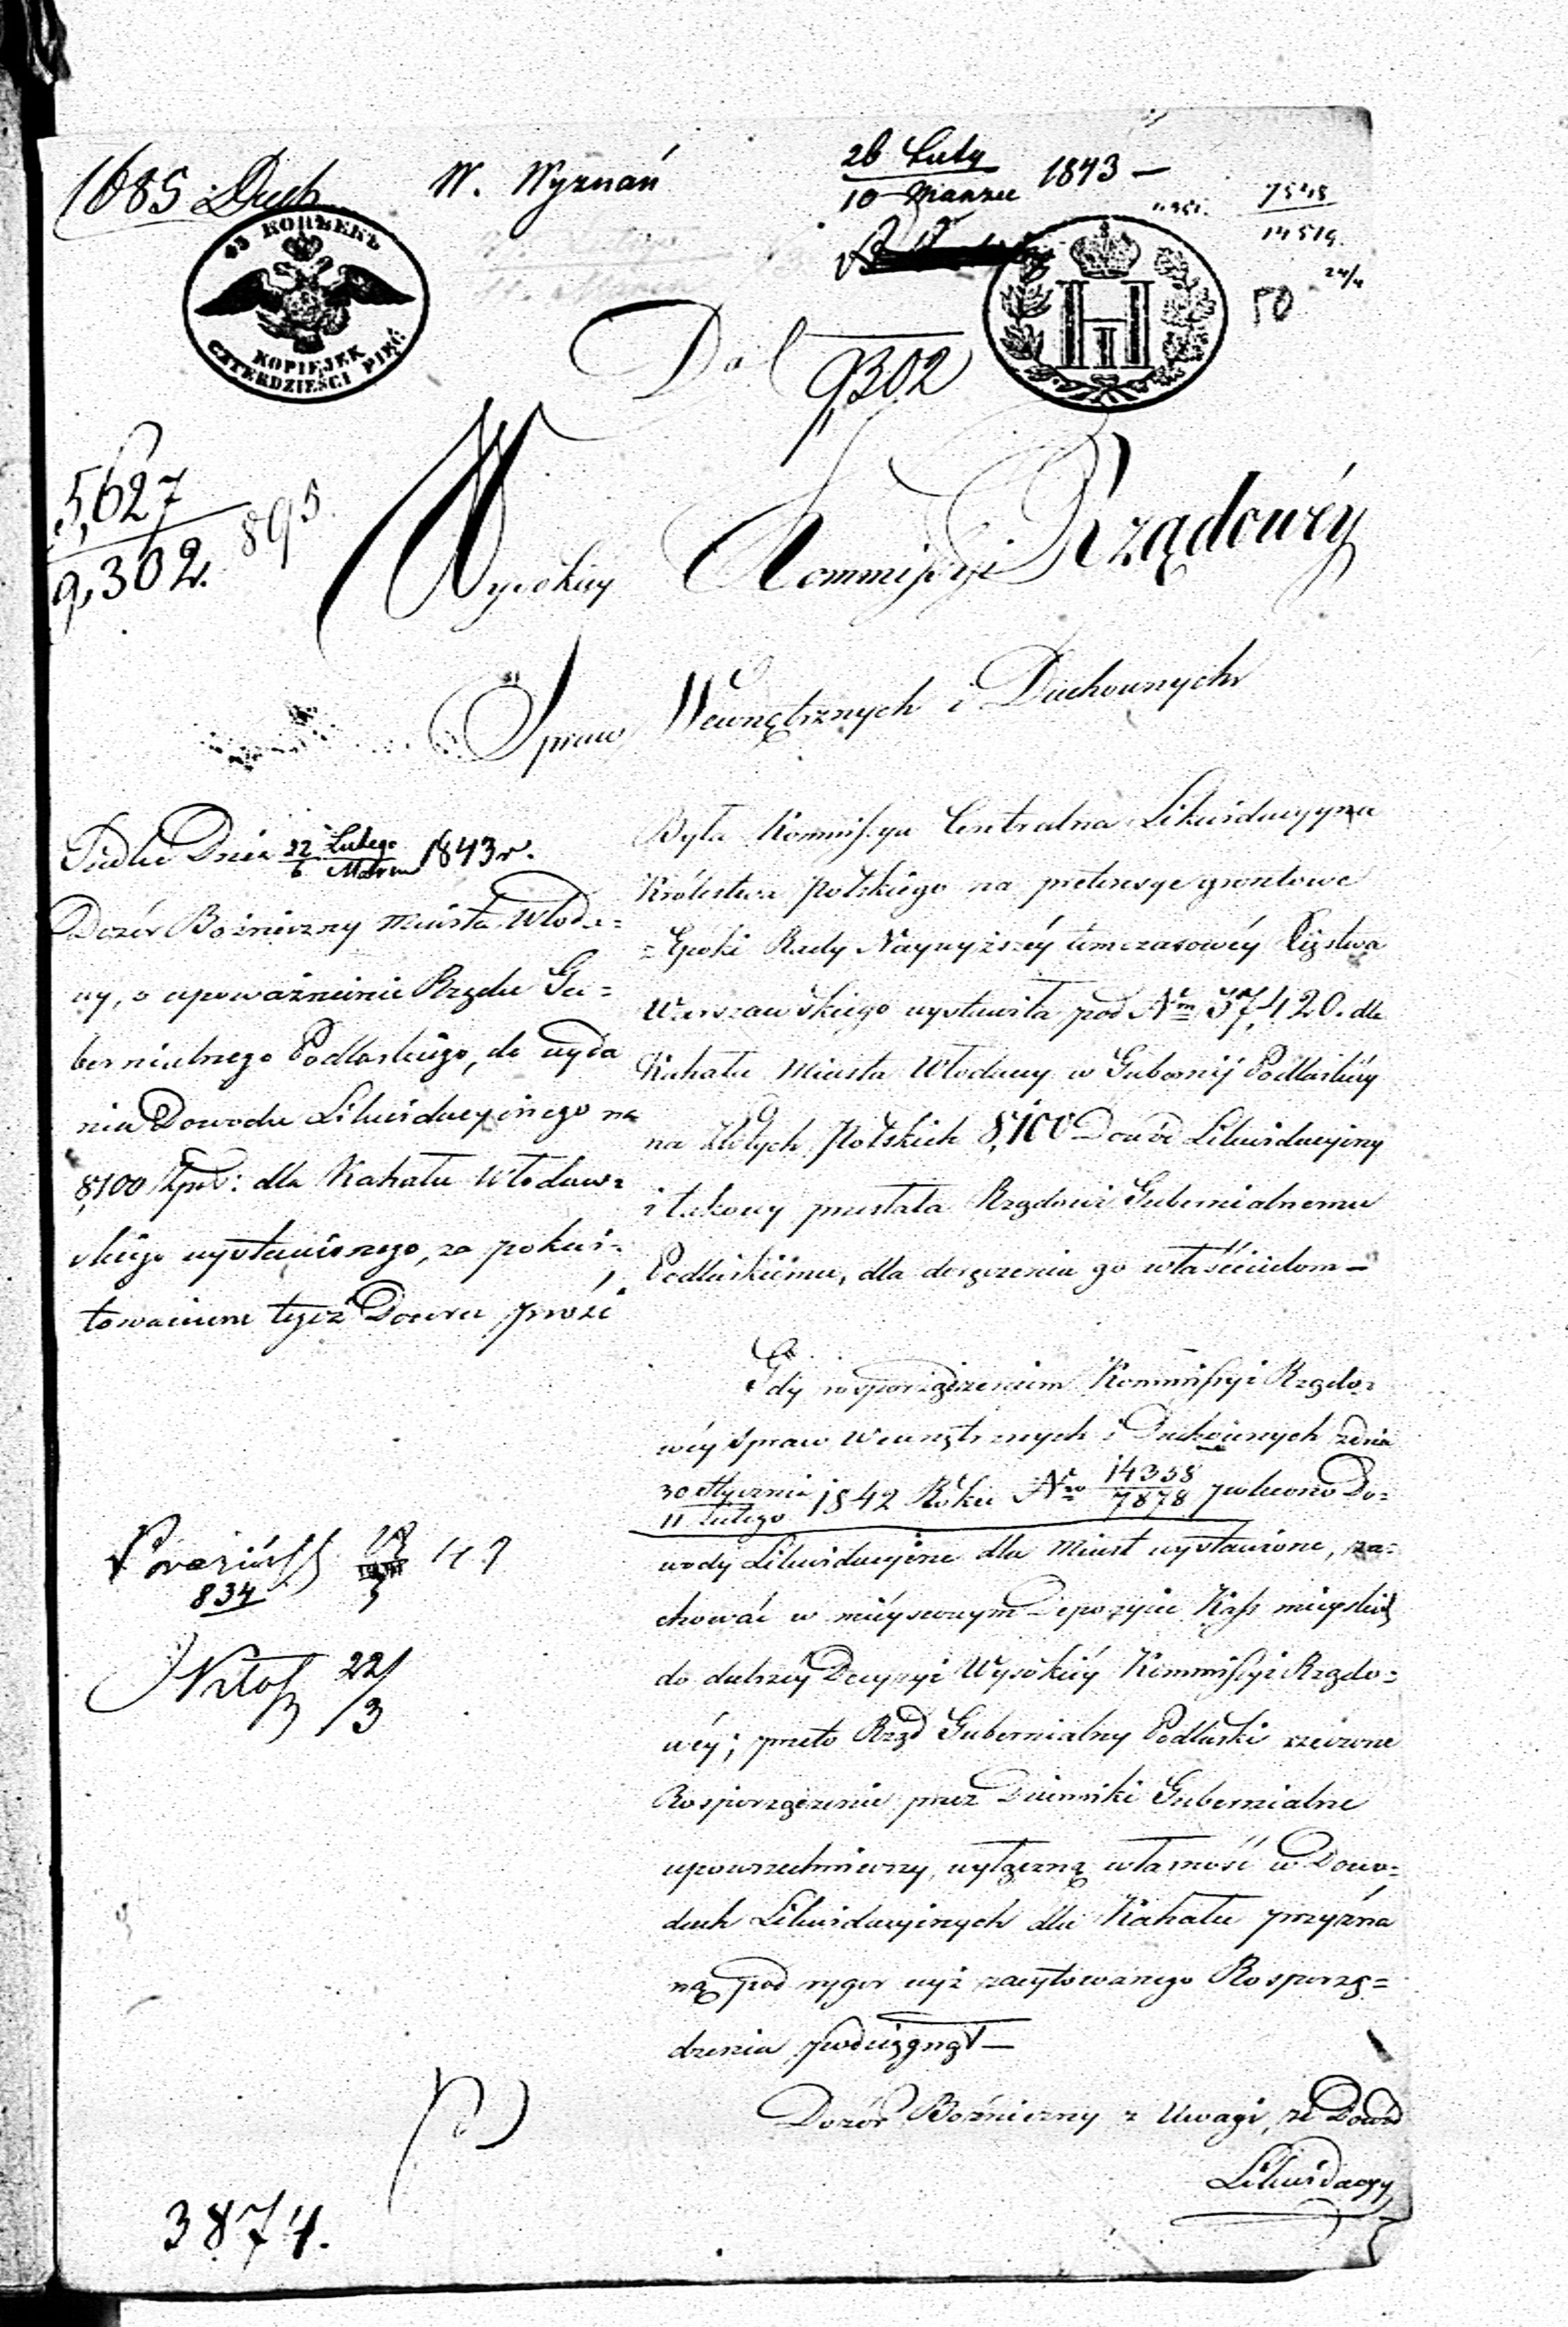 1685 Duch
W. Wyznań
26 Luty
10 Marca 1843 —
7548
14514.
24/4
50
45 КОПѢЕКЪ
KOPIEJEK
CZTERDZIEŚCI PIĘĆ
Do
9302
5,627
9,302. 895.
Wysokiey Kommissyi Rządowéy
Spraw Wewnętrznych i Duchownych
Siedlce Dnia 22 Lutego
6 Marca 1843 r.
Dozór Bożniczny Miasta Włoda=
wy, o upoważnienie Rządu Gu=
bernialnego Podlaskiego, do wyda
nia Dowodu Likwidacyinego na
8,100 Złp: dla Kahału Włodaw=
skiego wystawionego, za pokwi=
towaniem tegoż Dozoru prosi
834
22/3
3874.
Była Kommissya Centralna Likwidacyyna
Królestwa Polskiego na pretensye gruntowe
Epoki Rady Naywyższéy tymczasowéy Xięstwa
Warszawskiego wystawiła pod Nrm 37,420. dla
Kahału Miasta Włodawy w Gubernij Podlaskiéy
na Złotych Polskich 8,100 Dowód Likwidacyiny
i takowy przesłała Rządowi Gubernialnemu
Podlaskiemu, dla doręczenia go właścicielom —
Gdy rosporządzeniem Kommissyi Rządo=
wéy Spraw Wewnętrznych i Duchownych z dnia
30 Stycznia
11 Lutego 1842 Roku Nro 14358
7878 polecono Do=
wody Likwidacyine dla Miast wystawione, za=
chować w mieyscowym Depozycie Kass mieyskich
do dalszéy Decyzyi Wysokiéy Kommissyi Rządo=
wéy; przeto Rząd Gubernialny Podlaski rzeczone
Rosporządzenie przez Dzienniki Gubernialne
upowszechniwszy, wyłączną własność w Dowo=
dach Likwidacyinych dla Kahału przyzna
ną pod rygor wyż zacytowanego Rosporzą=
dzenia podciągnął —
Dozór Bożniczny z Uwagi, że Dowód
Likwidacyy